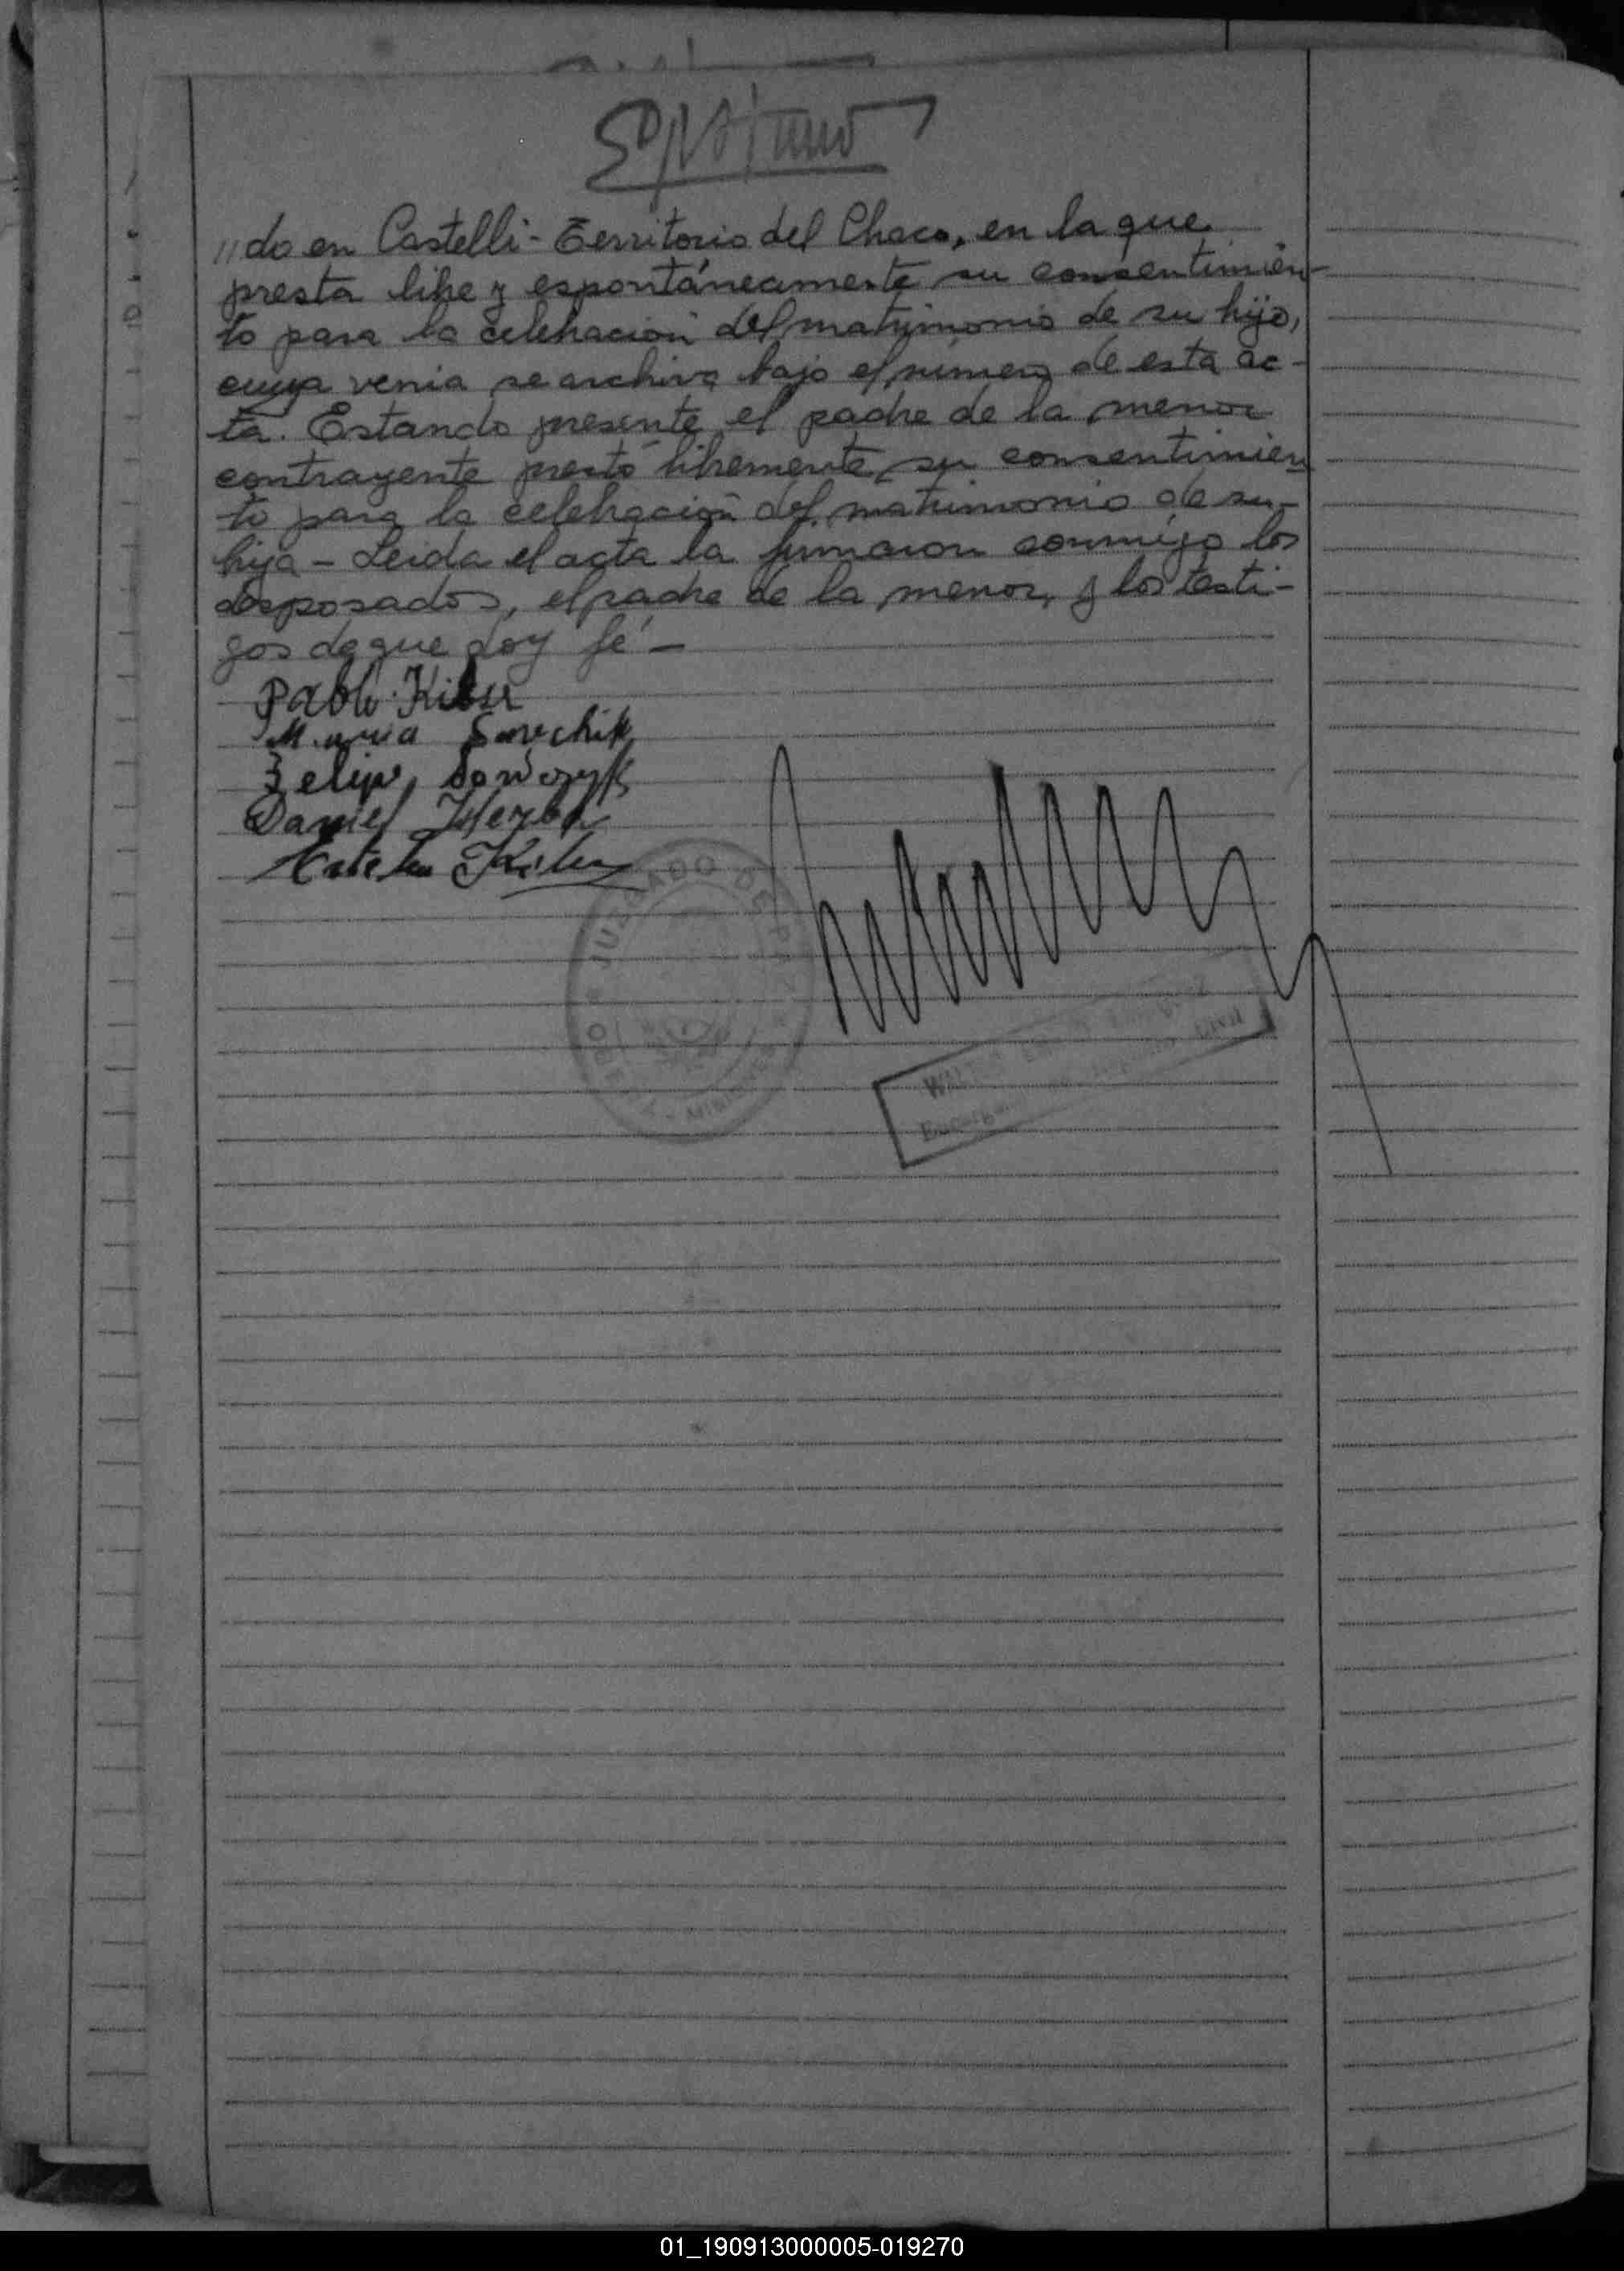 "do en Castelli - Territorio del Chaco, en la que
presta libre y espontáneamente su consentimien-
to para la celebración del matrimonio de su hijo,
cuya venia se archiva bajo el número de esta ac-
ta. Estando presente el padre de la menor
contrayente prestó libremente su consentimien
to para la celebración del matrimonio de su
hija - Leida el acta la firmaron conmigo los
desposados, el padre de la menor, y los testi-
gos de que doy fé -
Pablo
Maria
Felipe
Daniel
JUZGADO DE PAZ
OBERÁ - MISIONES
01_190913000005-019270